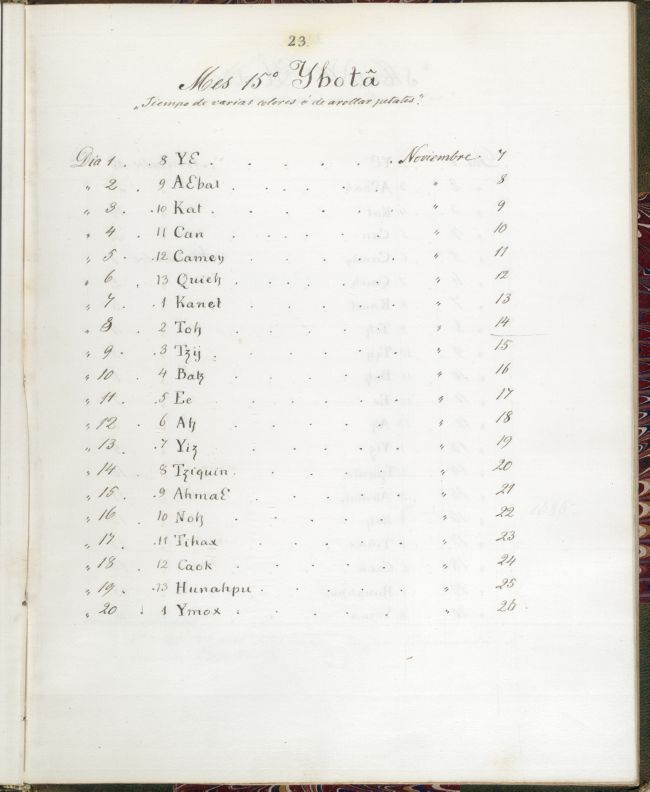 23
Mes 15° Ybotâ
„Tiempo de varias colores ó de arollar petates".
Dia 1 . 8 YƐ . . . . . Noviembre 7
" 2 . 9 AƐbal . . . . " 8
" 3 . .10 Kat . . . . . " 9
" 4 . 11 Can . . . . . " 10
" 5 . .12 Camey . . . . " 11
" 6 . 13 Quieh . . . . . " 12
" 7 . .1 Kanel . . . . " 13
" 8 2 Toh . . . . " 14
" 9 . .3 Tzij . . . . " 15
" 10 4 Batz . . . . " 16
" 11 . .5 Ee . . . . . " 17
" 12 6 Ah . . . . " 18
" 13 . .7 Yiz . . . . " 19
" 14 8 Tziquin . . . . " 20
" 15 . .9 AhmaƐ . . . . " 21
" 16 10 Noh . . . . " 22
" 17 . .11 Tihax . . . . " 23
" 18 12 Caok . . . . " 24
" 19 . .13 Hunahpu . . . . " 25
" 20 . 1 Ymox . . . . " 26